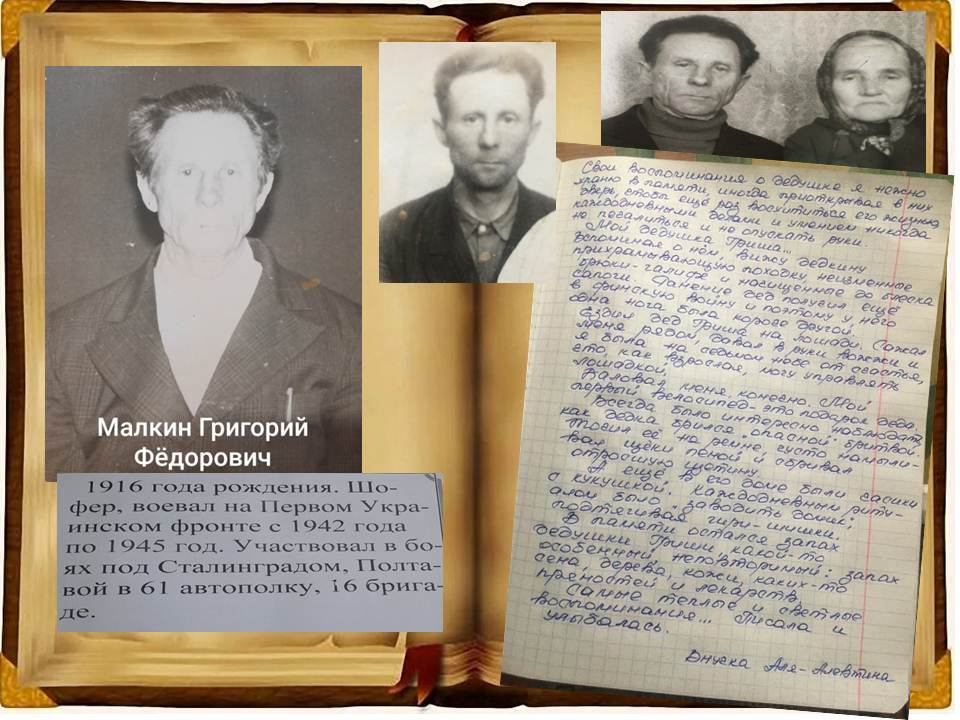 Малкин Григорий
Фёдорович
1916 года рождения. Шо-
фер, воевал на Первом Укра-
инском фронте с 1942 года
по 1945 год. Участвовал в бо-
ях под Сталинградом, Полта-
вой в 61 автополку, 16 брига-
де.
Свои воспоминания о дедушке я нежно
храню в памяти, иногда приоткрывая в них
дверь, чтобы ещё раз восхититься его жизнью,
каждодневными делами и умением никогда
не печалиться и не опускать руки.
Мой дедушка Гриша...
Вспоминая о нём, вижу дедкину
прихрамывающую походку, неизменные
брюки-галифе и начищенные до блеска
сапоги. Ранение дед получил ещё
в финскую войну и поэтому у него
одна нога была короче другой.
Ездил дед Гриша на лошади. Сажал
меня рядом, давал в руки вожжи и
я была на седьмом небе от счастья,
что как взрослая, могу управлять
лошадкой.
Баловал меня, конечно. Мой
первый велосипед - это подарок деда.
Всегда было интересно наблюдать
как дедка брился опасной бритвой.
Точил её на ремне, густо намыли-
вал щёки пеной и сбривал
отросшую щетину.
А ещё в его доме были часики
с кукушкой. Каждодневным риту-
алом было: заводить домик,
подтягивая гири-шишки.
В памяти остался запах
дедушки Гриши, какой-то
особенный, неповторимый: запах
сена, дерева, кожи, каких-то
пряностей и лекарств.
Самые теплые и светлые
воспоминания... Писала и
улыбалась.
Внучка Аля-Алевтина